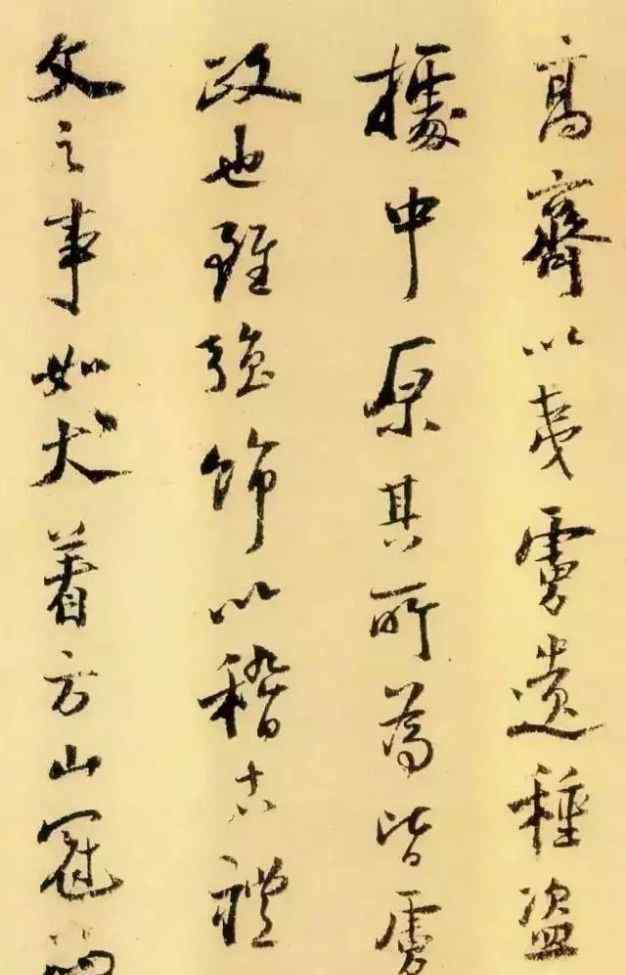 高齊以夷虜遺種盜
據中原其所為皆虜
政也雖強飾以稽古禮
文之事如犬着方山冠